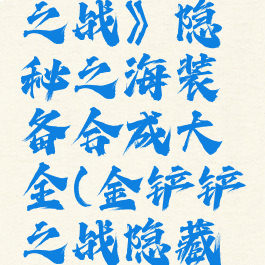 之战》隐
秘之海装
备合成大
全(金铲铲
之战隐藏